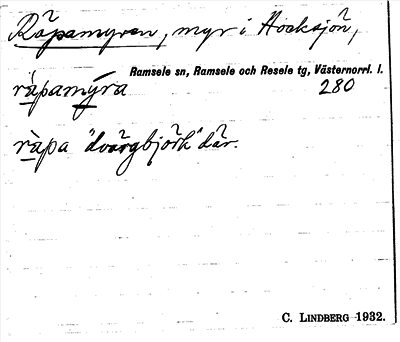 Råpamyren, myr i Hocksjön,
Ramsele sn, Ramsele och Resele tg, Västernorrl. l.
råpamýra 280
ràpa "dvärgbjörk" där.
C. LINDBERG 1932.